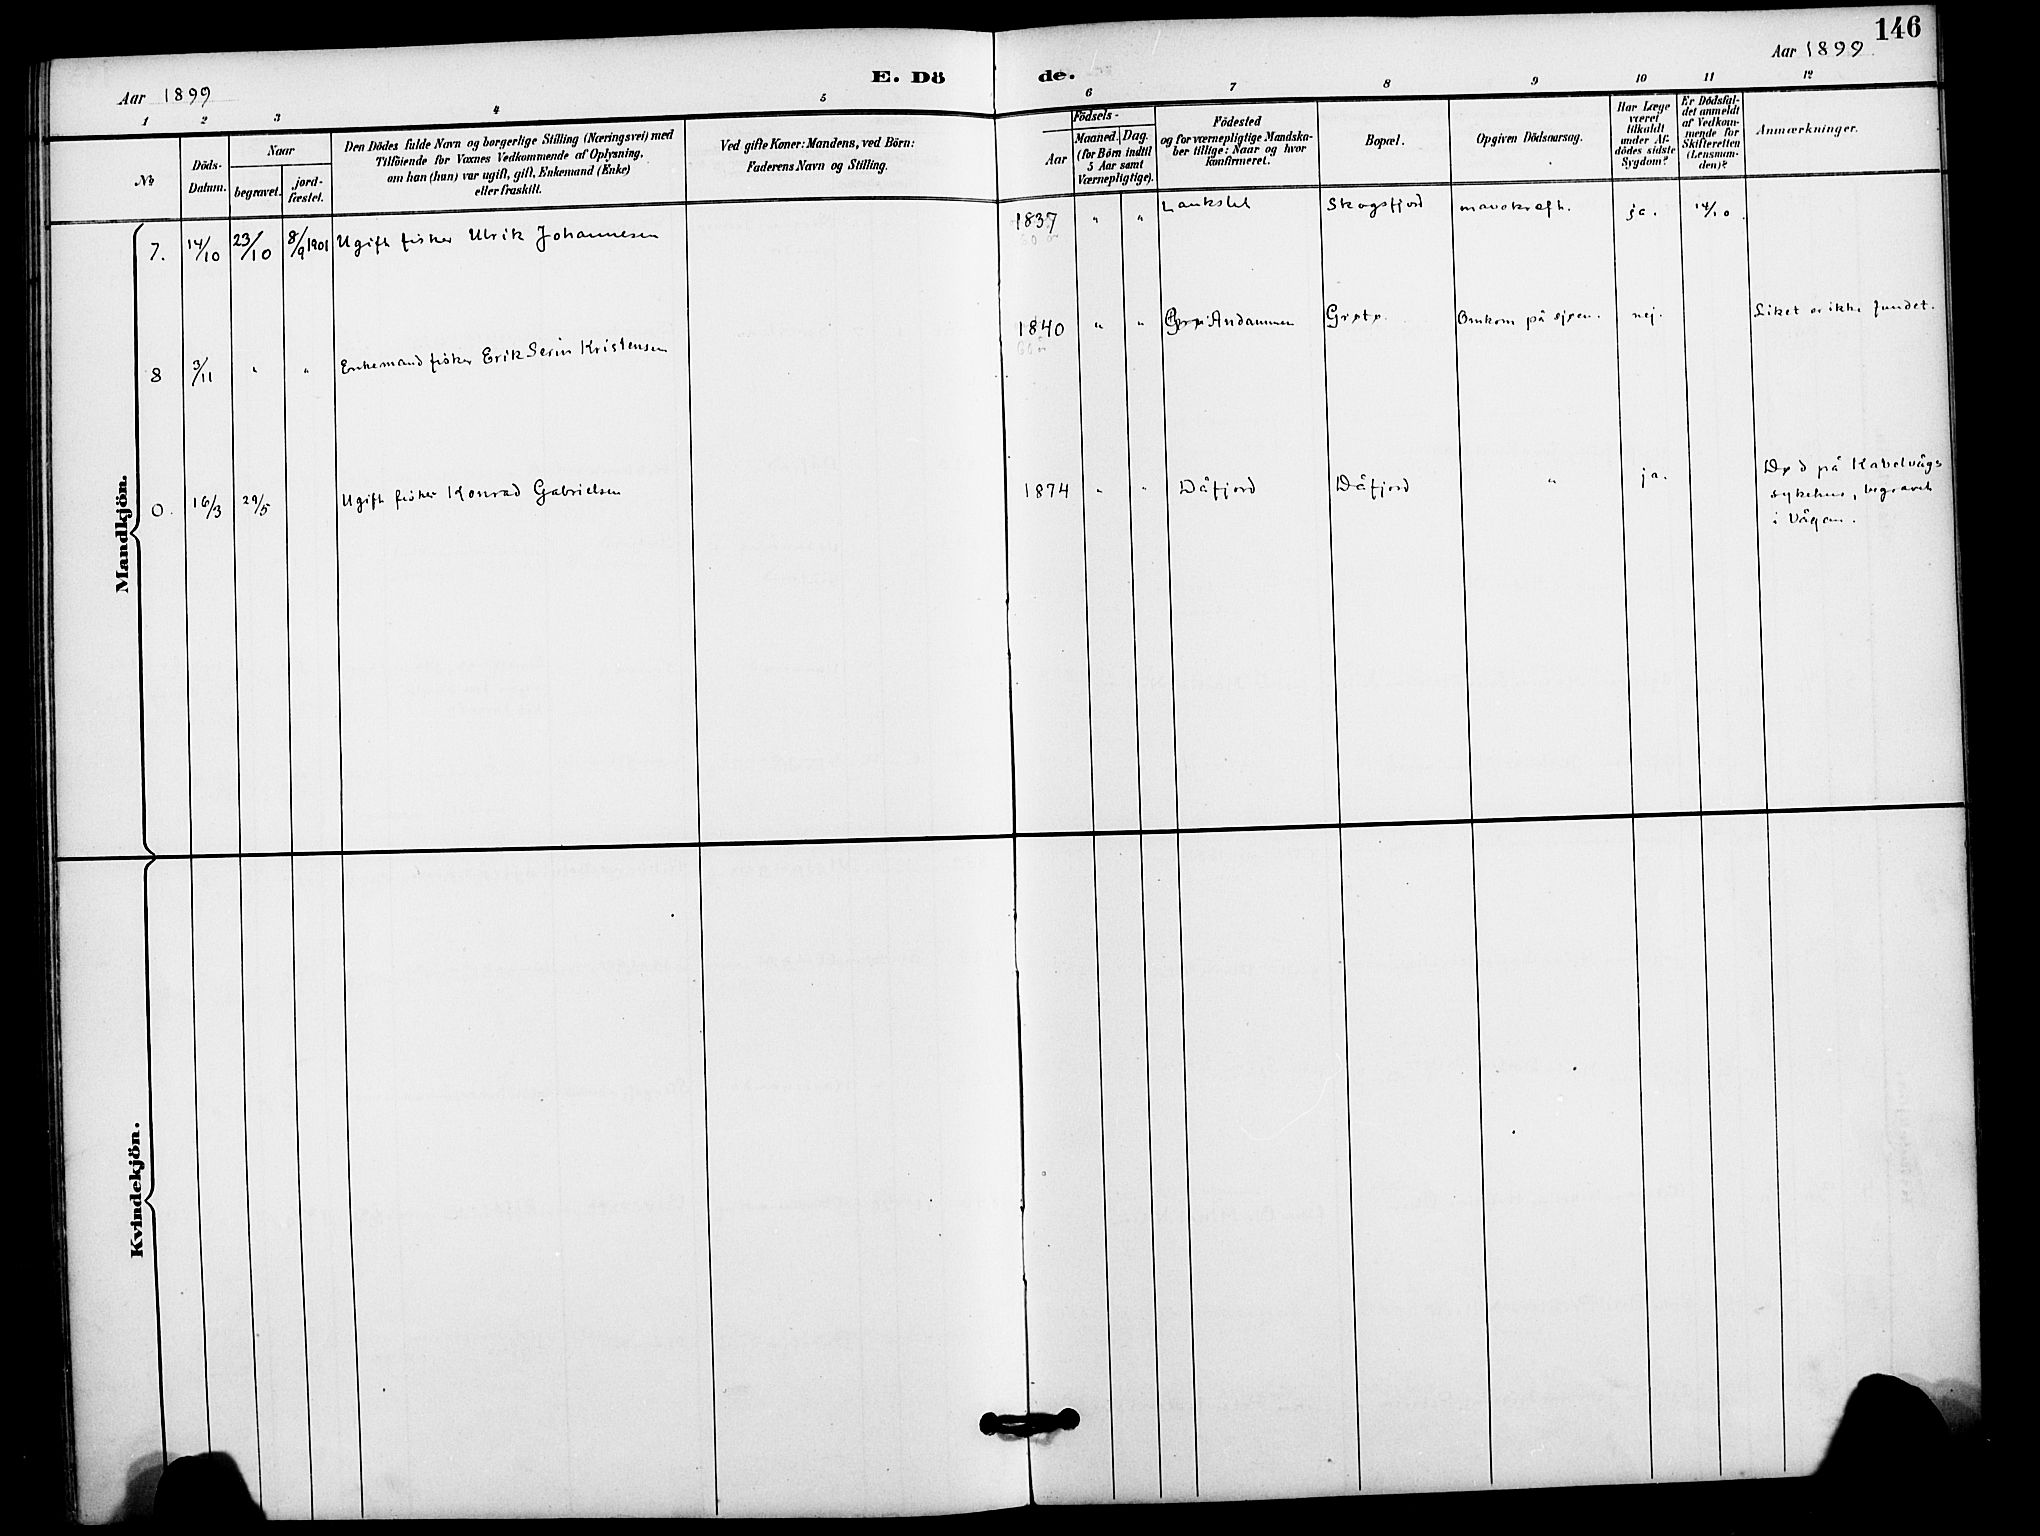 146
Aar 1899
E. Dö de.
Aar 1899
1 2 3 4 5 6 7 8 9 10 11 12
No
Döds-
Datum.
Naar
begravet.
jord-
fæstet.
Den Dödes fulde Navn og borgerlige Stilling (Næringsvei) med
Tilföiende for Voxnes Vedkommende af Oplysning,
om han (hun) var ugift, gift, Enkemand (Enke)
eller fraskilt.
Ved gifte Koner: Mandens, ved Börn:
Faderens Navn og Stilling.
Födsels-
Aar
Maaned. Dag.
(for Börn indtil
5 Aar samt
Værnepligtige).
Födested
og for værnepligtige Mandska-
ber tillige: Naar og hvor
konfirmeret.
Bopæl.
Opgiven Dödsaarsag.
Har Læge
været
tilkaldt
under Af-
dödes sidste
Sygdom?
Er Dödsfal-
det anmeldt
af Vedkom-
mende for
Skifteretten
(Lensman-
den)?
Anmærkninger.
Mandkjön.
7. 14/10 23/10 8/9 1901 Ugift fisker Ulrik Johannesen 1837 " " Skogsfjord mavekræft. ja. 14/10
8 3/11 " " Enkemand fisker Erik Serin Kristensen 1840 " " Grøtø. Omkom på sjøen. nej. Liket er ikke fundet.
0. 16/3 29/5 Ugift fisker Konrad Gabrielsen 1874 " " Dåfjord Dåfjord " ja. Død på Kabelvågs
sykehus, begravet
i Vågan.
Kvindekjön.